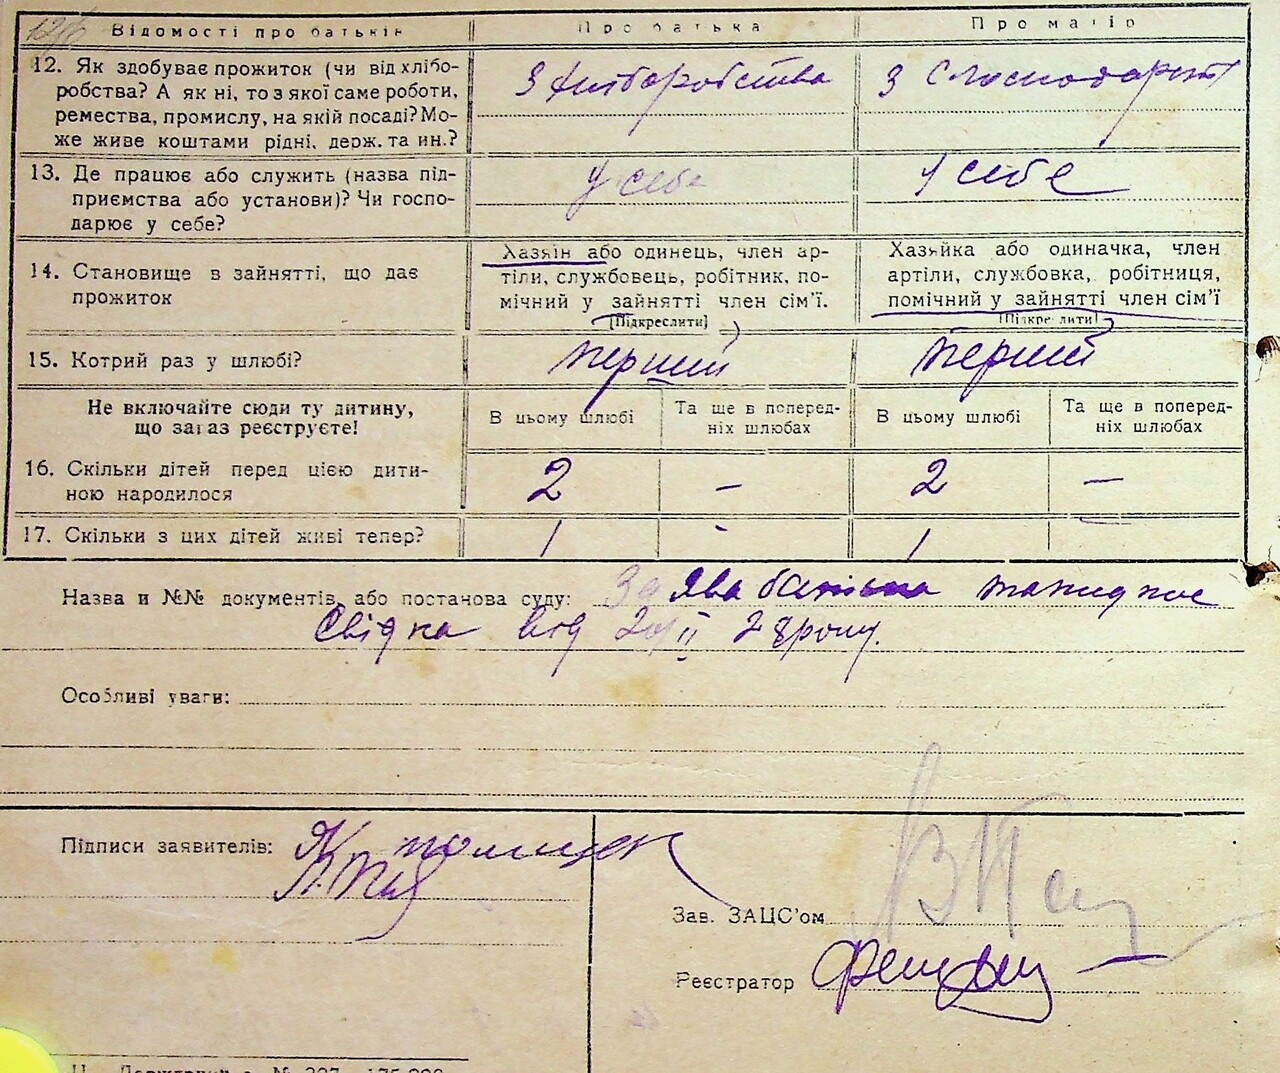 Відомості про батьків
Про батька
Про матір
12. Як здобуває прожиток (чи від хлібо-
робства? А як ні, то з якої саме роботи,
ремества, промислу, на якій посаді? Мо-
же живе коштами рідні, держ. та ин.?
З хліборобства
З
13. Де працює або служить (назва під-
приємства або установи)? Чи госпо-
дарює у себе?
у себе
у себе
14. Становище в зайнятті, що дає
прожиток
Хазяїн або одинець, член ар-
тіли, службовець, робітник, по-
мічний у зайнятті член сім'ї.
[Підкреслити]
Хазяйка або одиначка, член
артіли, службовка, робітниця,
помічний у зайнятті член сім'ї
[Підкреслити]
15. Котрий раз у шлюбі?
перший
перший
Не включайте сюди ту дитину,
що зараз реєструєте!
В цьому шлюбі
Та ще в поперед-
ніх шлюбах
В цьому шлюбі
Та ще в поперед-
ніх шлюбах
16. Скільки дітей перед цією дити-
ною народилося
2
–
2
–
17. Скільки з цих дітей живі тепер?
1
-
1
Назва и №№ документів або постанова суду: Заява батька
Свідка від 28 року.
Особливі уваги:
Підписи заявителів:
Зав. ЗАЦС'ом
Реєстратор